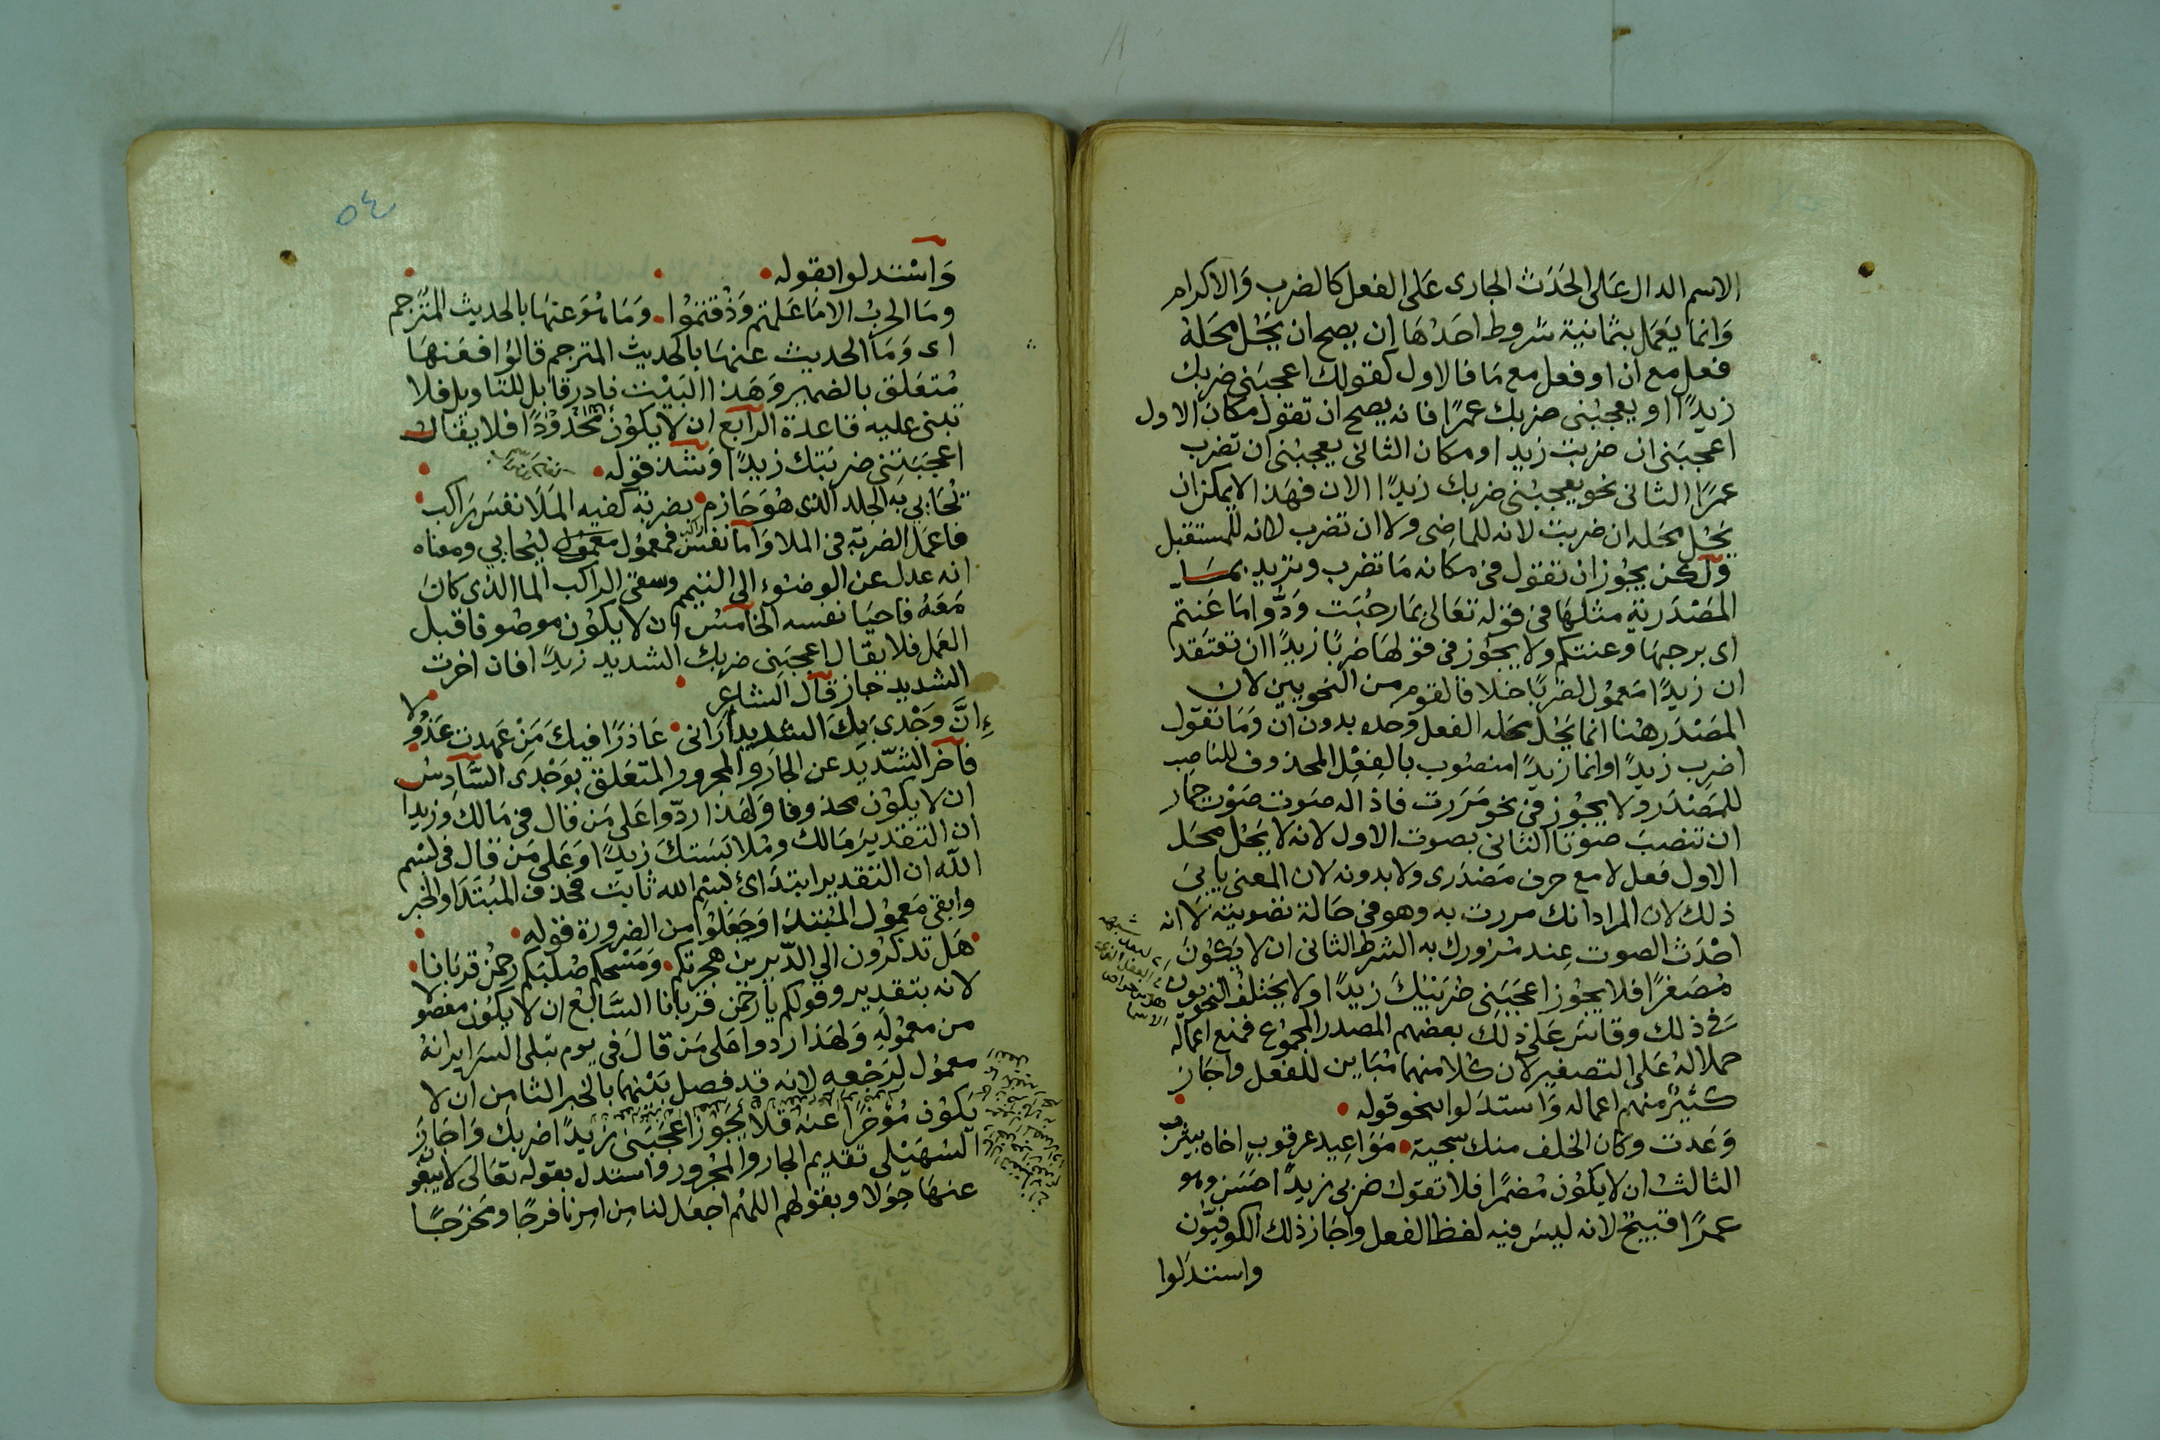 الاسم الدال عَلى الحَدَث الجارى عَلى الفعل كالضرب وَالاكرام
وَانما يَعمَل بثمانية شروط احَدُهَا ان يصح ان يَحُل محَلهُ
فعل مع ان او فعل مع مَا فالاول كقولك اعجبَنى ضربك
زيدًا او يعجبُنى ضربك عمرًا فانه يصح ان تقول مكان الاول
اعجبَنى ان ضربت زيدا ومكان الثانى يعجبُنى ان تضرب
عمرًا الثانى نحو يعجبُنى ضربك زيدًا الان فهَذا لايمكن ان
يَحُل محَله ان ضربت لانه للماضِى ولا ان تضرب لانه للمستقبل
وَلكن يجُوز ان تقول فى مكانه مَا تضرب وتريد بمَـا
المصْدَرية مثلهَا فى قوله تعَالى بمَا رحُبَت وَدُّوا مَا عَنتم
اى برحبهَا وعنتكم ولا يجُوز فى قولهَا ضربًا زيدًا ان تعتقد
ان زيدًا مَعمُول لضربًا خلافا لقوم من النحويين لان
المصْدَر هنا انما يَحُل محَله الفعل وَحده بدون ان وَمَا تقول
اضرب زيدًا وانما زيدًا منصُوب بالفِعْل المحذوف للناصِب
للمصْدَر ولا يجُوز فى نحو مَرَرت فاذا له صَوت صَوْت حمار
ان تنصب صَوْتا الثانى بصوت الاول لانه لا يَحُل محَل
الاول فعل لا مع حرف مَصْدَرى ولا بدونه لان المعنى يابىَ
ذلك لان المراد انك مررت به وهو فى حَالة تصويته لا انه
احْدَث الصوت عِند مُرورك به الشرط الثانى ان لا يَكوُنَ
مُصَغرًا فلا يجُوز اعجَبَنى ضُرَيْبُكَ زيدًا ولا يختلف النحويون
فى ذلك وقاسَ عَلى ذلك بعضهم المصدر المجمُوع فمنع اعماله
حملا لهُ عَلى التصغير لان كلا منهما مُبَاين للفعل واجَازَ
كثيرٌ منهم اعماله وَاستدَلوا بنحو قوله
وَعَدت وكان الخلف منك سجية مَوَاعِيد عرقوبٍ اخاه بيثرب
الثالث ان لا يكوُن مُضمَرًا فلا تقول ضربى زيدًا حَسَن وهو
عمرًا قبيحٌ لانه ليسَ فيه لفظ الفعل واجَاز ذلك الكوفيوّن
واستدَلوا
٥٤
وَاسْتدلوا بقوله
ومَا الحربُ الا مَا عَلمتم وَذقتموُا وَمَا هُوَ عنهَا بالحديث المُرَجم
اى وَمَا الحديث عنهَا بالحديث المترجم قالوُا فعَنهَا
مُتعَلق بالضمير وَهَذا البَيْت نادر قابل للتاويل فلا
تبنى عليه قاعدة الرابع ان لا يكوُن مَحْدُودًا فلا يقال
اعجَبَتنى ضربَتك زيدًا وَشذ قوله
يُحَايى به الجلد الذى هُوَ حَازم بضربة كفيه المَلَا نفسَ رَاكب
فاعمَل الضربة فى الملا وَاما نفسَ فمعمُول ليُحايى ومعناه
انه عدل عن الوضوُء الى التيمم وسقى الراكب الما الذى كانَ
مَعَهُ فاحيَا نفسه الخامسُ ان لا يكوُن موصُوفا قبل
العَمل فلا يقال اعجبَنى ضربك الشديد زيدًا فان اخرت
الشديد جاز قال الشاعر
انَّ وَجْدى بكَ الشديد أرَانى عَاذرًا فيك مَنْ عَهدت عَذوُلا
فاخر الشّديد عن الجار والمجرور المتعَلق بوَجْدى السَّادِسُ
ان لا يكوُن محذوفا وَلهَذا ردّوا عَلى مَن قال فى مَالك وَزيدا
ان التقديرَ مَالك ومُلابَسَتكَ زيدًا وَعَلى مَن قال فى بسْم
الله ان التقدير ابتدَائ بسْم الله ثابت فحذف المُبتدَا والخبر
وابقى مَعمُول المُبْتدَا وَجَعَلوُا من الضرورة قوله
هَل تذكرُون الى الدّيرين هجرَتكم وَمَسْحكم صُلبَكم رحمنُ قربَانا
لانه بتقدير وقولكم يا رحمن قربانا السَّابع ان لا يكوُن مفصُولا
من معمُولهِ وَلهَذا ردوا عَلى مَن قال فى يوم تبلى السَراير انهُ
معمُول لرَجْعه لانه قد فصل بَيْنهما بالخبر الثامن ان لا
يَكوُن مُؤخرًا عنه فلا يجُوز اعْجَبَنى زيدًا ضربك وَاجَازَ
السُهَيْلى تقديم الجار والمجْرور واستدل بقوله تعَالى لا يبغوُن
عنهَا حِوَلا وبقولهم اللهُم اجعَل لنا مِن امِرنا فرجًا ومخرَجًا